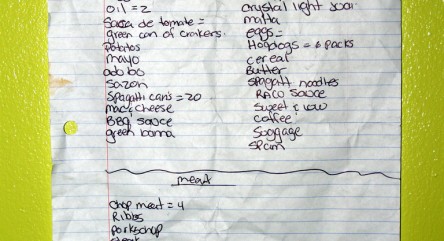 oil = 2
Salsa de tomate =
green can of crakers.
Potatos
mayo
adobo
Sazon
Spagatti can's = 20
mac & cheese
BBQ sauce
green banna
crystal light
malta
eggs =
Hogdogs = 6 packs
cereal
Butter
Spagatti noodles
RAGU Sauce
Sweet & low
coffee
Soggage
Spam
meat
chop meat = 4
Ribbs
porkschop
steak